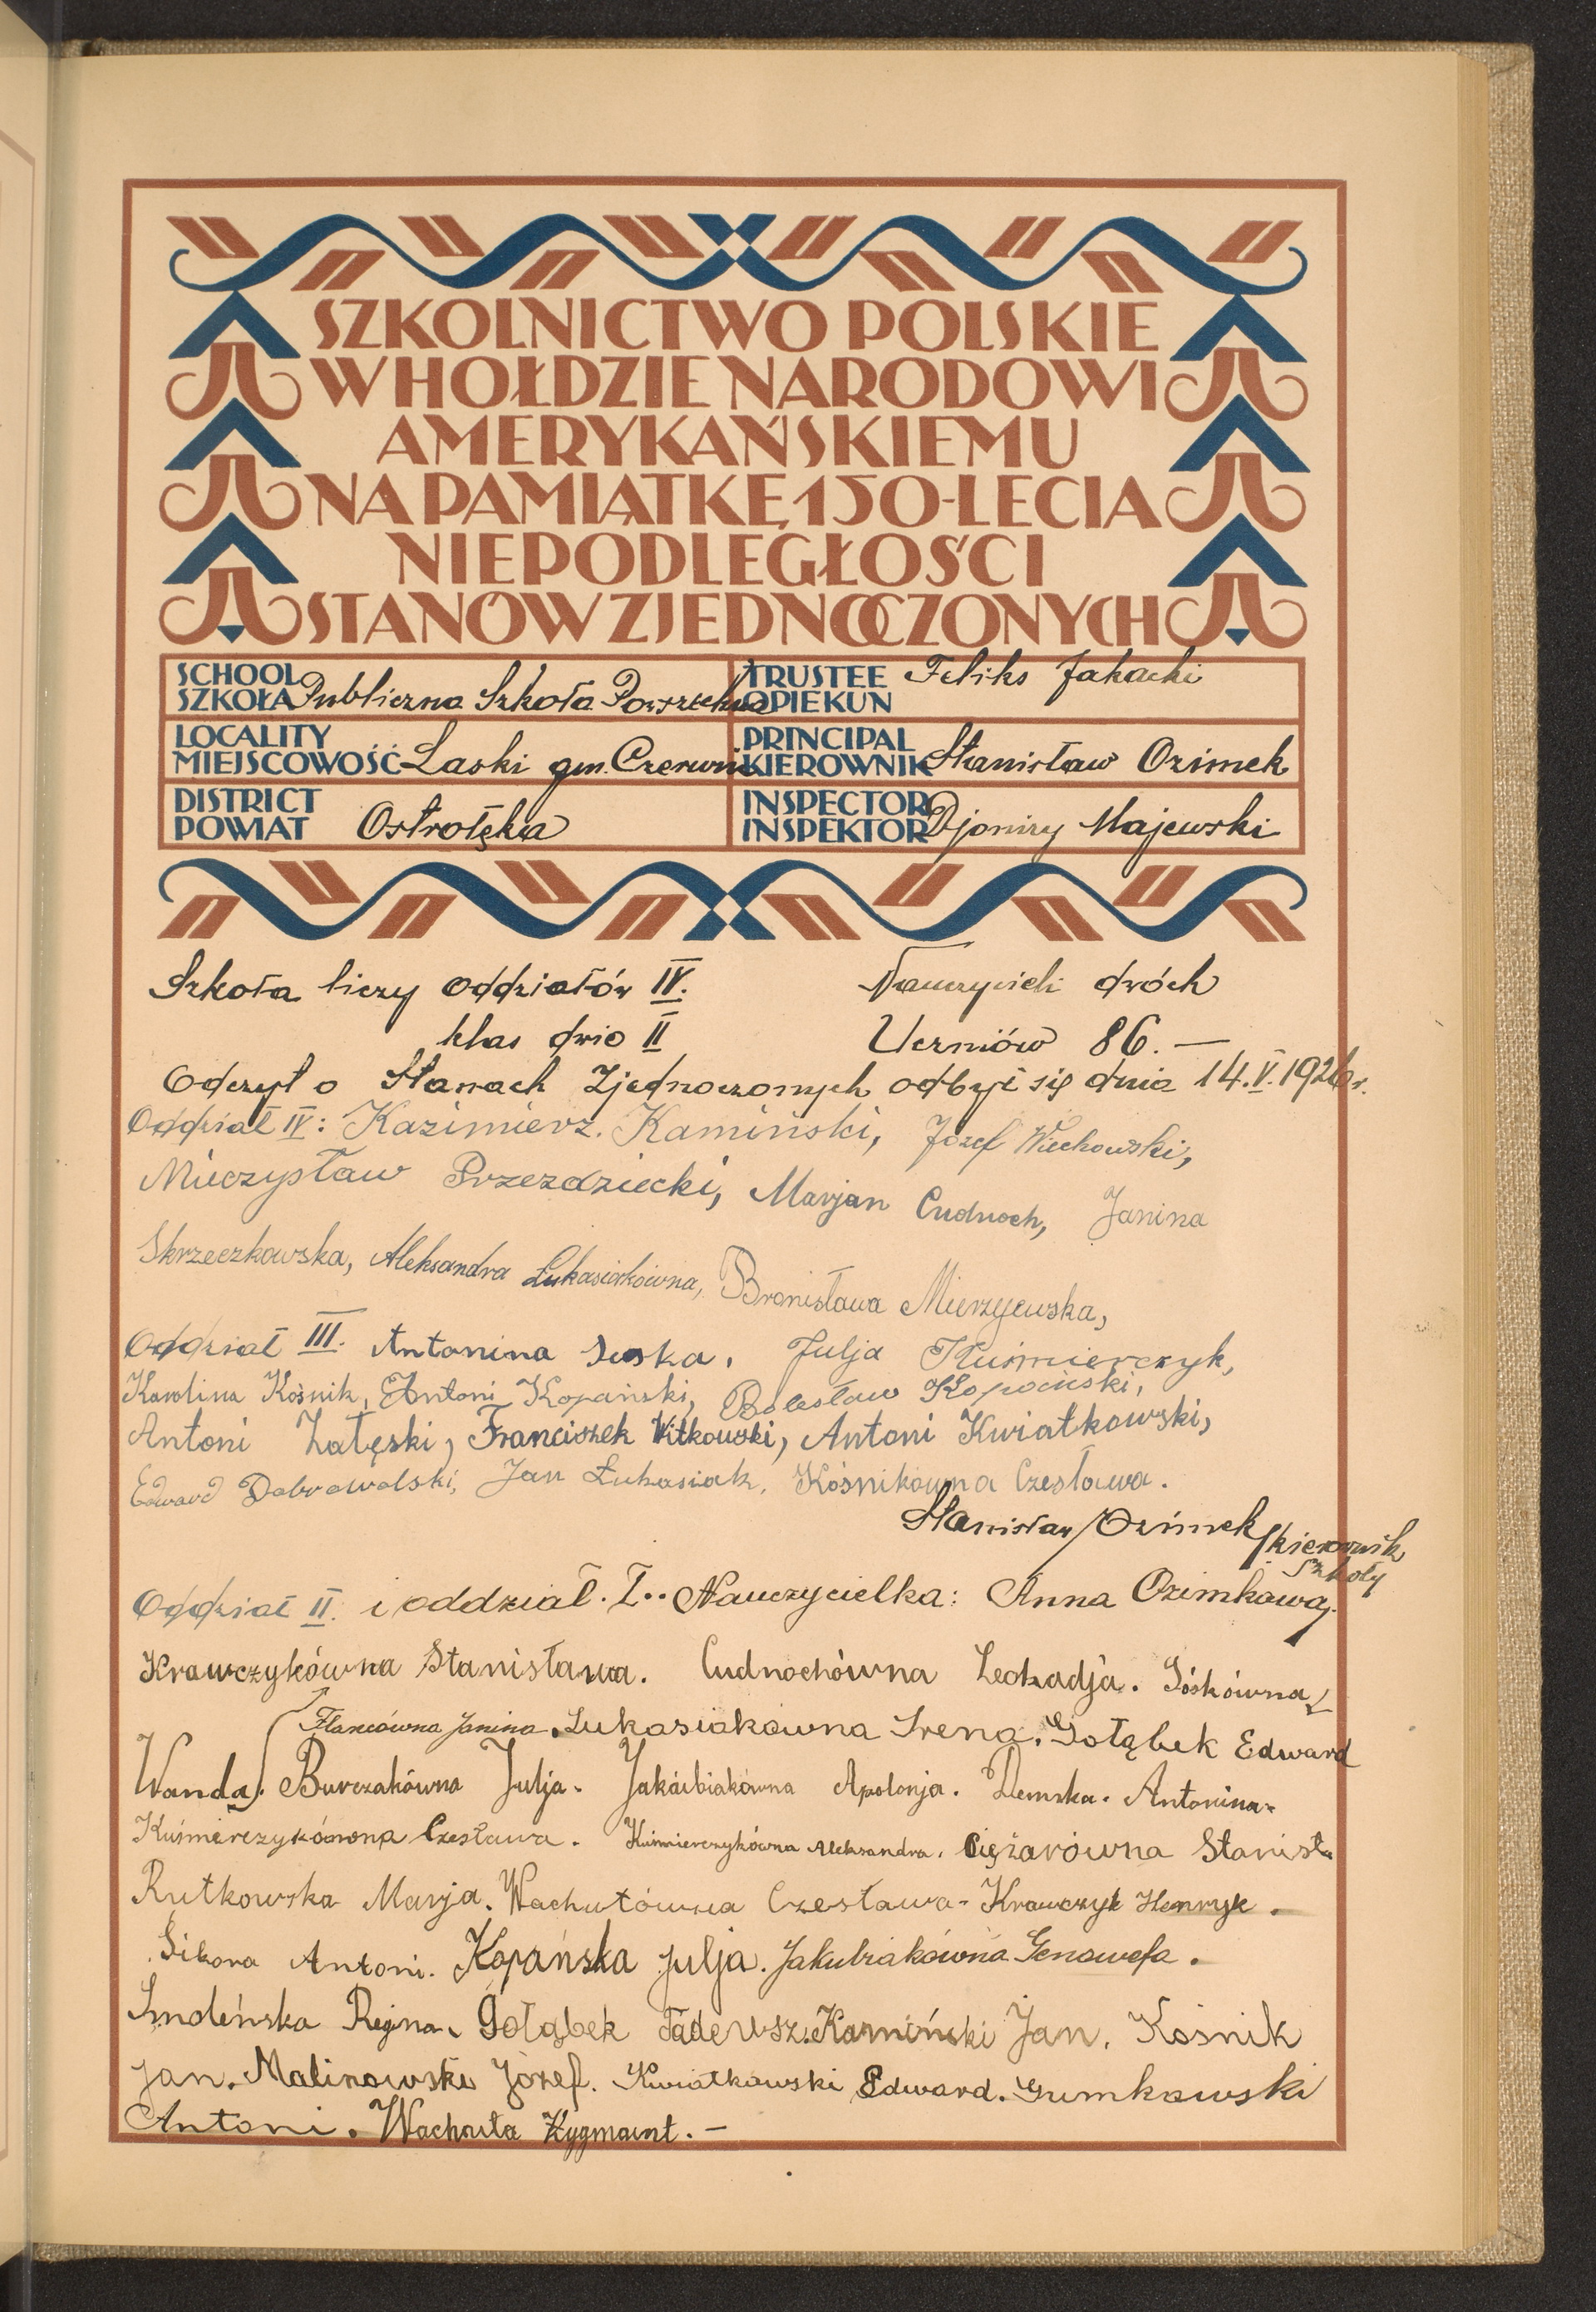 SZKOLNICTWO POLSKIE
W HOŁDZIE NARODOWI
AMERYKAŃSKIEMU
NA PAMIĄTKĘ 150-LECIA
NIEPODLEGŁOŚCI
STANÓW ZJEDNOCZONYCH
SCHOOL
SZKOŁA Publiczna Szkoła Powszechna
TRUSTEE Feliks Jakacki
OPIEKUN
LOCALITY
MIEJSCOWOŚĆ Laski gm. Czerwin
PRINCIPAL
KIEROWNIK Stanisław Ozimek
DISTRICT
POWIAT Ostrołęka
INSPECTOR
INSPEKTOR Djonizy Majewski
Szkoła liczy oddziałów IV. Nauczycieli dwóch
klas dwie II Uczniów 86. —
Odczyt o Stanach Zjednoczonych odbył się dnia 14.V.1926 r.
Oddział IV: Kazimierz. Kamiński, Józef Wiechowski,
Mieczysław Przezdziecki, Marjan Cudnoch, Janina
Skrzeczkowska, Aleksandra Łukasiakówna, Bronisława Mierzyewska,
Oddział III. Antonina Suska, Julja Kuśmierczyk,
Karolina Kośnik, Antoni Kopański, Bolesław Kopociński,
Antoni Załęski, Franciszek Witkowski, Antoni Kwiatkowski,
Edward Dobrowolski, Jan Łukasiak, Kośnikówna Czesława.
Stanisław Ozimek / kierownik
szkoły
Oddział II. i oddział. I.. Nauczycielka: Anna Ozimkowa,
Krawczykówna Stanisława. Cudnochówna Leokadja. Góskówna
Flancówna Janina. Łukasiakówna Irena. Gołąbek Edward
Wanda. Burczakówna Julja. Jakóbiakówna Apolonja. Demska. Antonina.
Kuśmierczykówna Czesława. Kuśmierczykówna Aleksandra. Ciężarówna Stanisła
Rutkowska Marja. Wachutówna Czesława - Krawczyk Henryk.
Sikora Antoni. Kopańska Julja. Jakubiakówna Genowefa.
Smoleńska Regina. Gołąbek Tadeusz. Kamiński Jan. Kośnik
Jan. Malinowski Józef. Kwiatkowski Edward. Gumkowski
Antoni. Wachuta Zygmunt. —